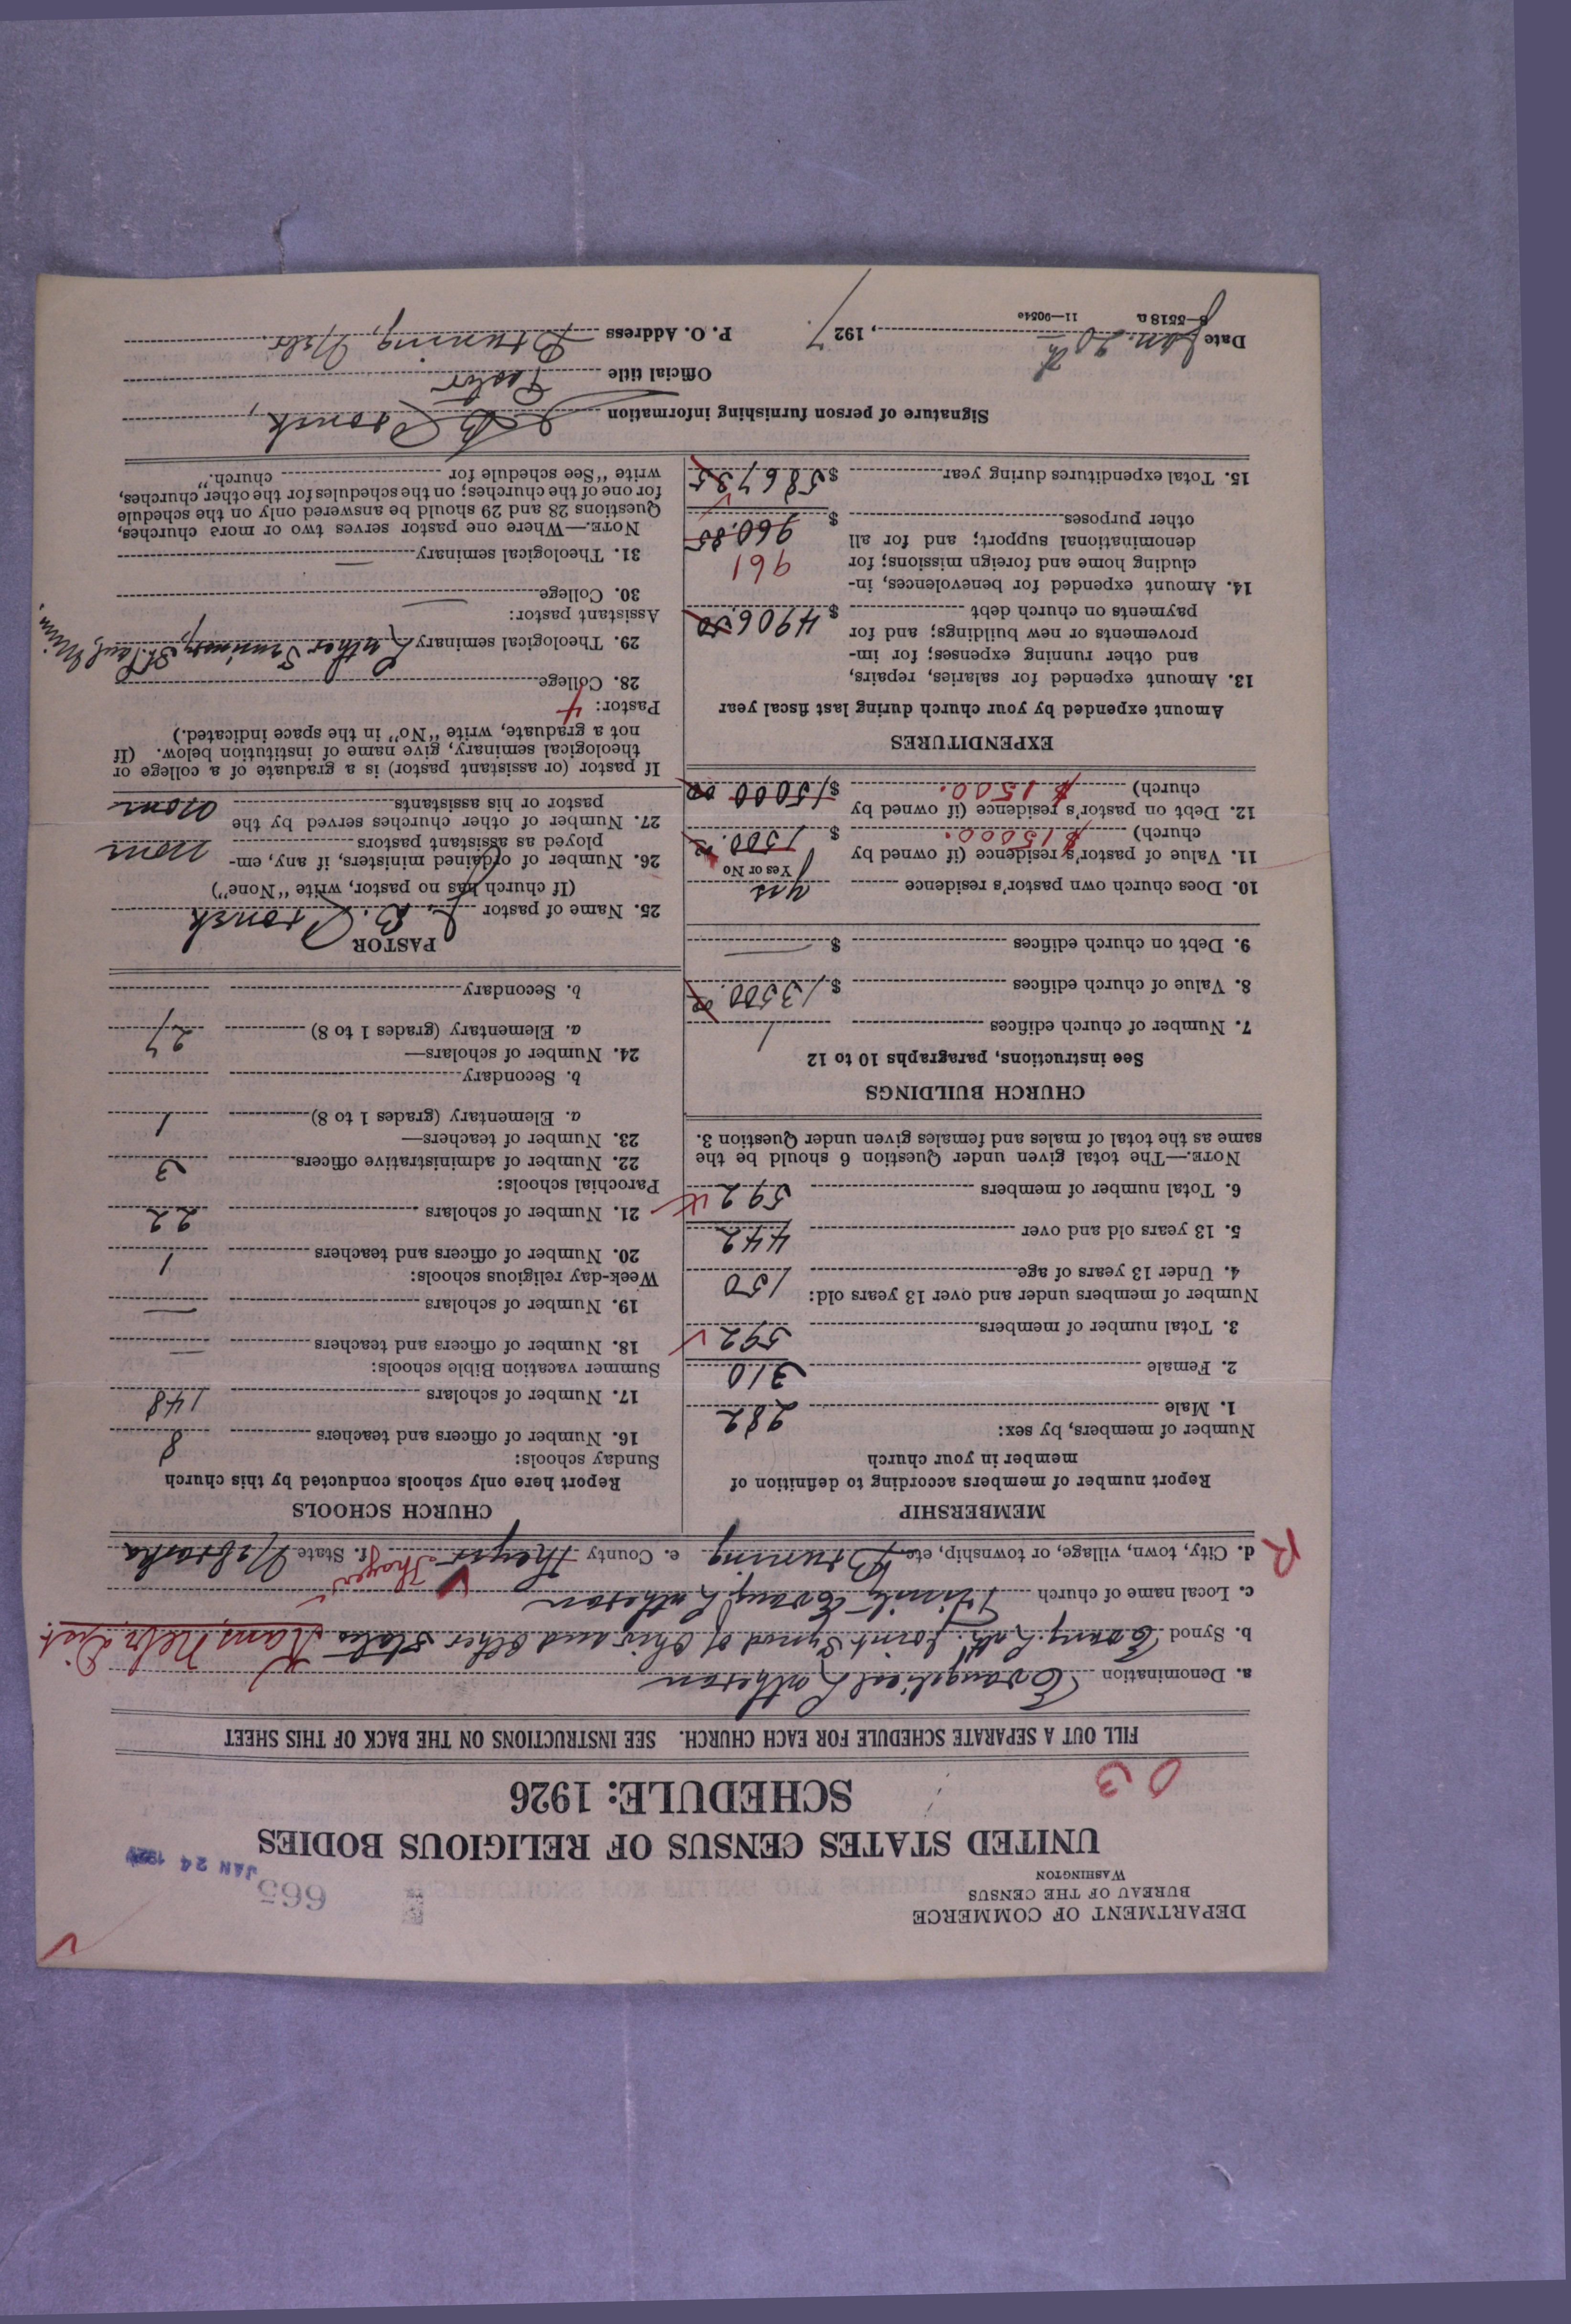 DEPARTMENT OF COMMERCE
BUREAU OF THE CENSUS
WASHINGTON
665
JAN 24 192
UNITED STATES CENSUS OF RELIGIOUS BODIES
SCHEDULE: 1926
03
FILL OUT A SEPARATE SCHEDULE FOR EACH CHURCH. SEE INSTRUCTIONS ON THE BACK OF THIS SHEET
a. Denomination Evangelical Lutheran
b. Synod Evang. Luth. Joint Synod of Ohio and other states Kans Nebr Dist.
c. Local name of church Trinity Evang. Lutheran
d. City, town, village, or township, etc. Bruning e. County Thayer Thayer f. State Nebraska
R
MEMBERSHIP
Report number of members according to definition of
member in your church
Number of members, by sex:
1. Male 282
2. Female 310
3. Total number of members 592
Number of members under and over 13 years old:
4. Under 13 years of age 150
5. 13 years old and over 442
6. Total number of members 592
NOTE.—The total given under Question 6 should be the
same as the total of males and females given under Question 3.
CHURCH BUILDINGS
See instructions, paragraphs 10 to 12
7. Number of church edifices 1
8. Value of church edifices $13500.00
9. Debt on church edifices $ —
10. Does church own pastor's residence yes
Yes or No
11. Value of pastor's residence (if owned by
church) $15000. $ 1500.00
12. Debt on pastor's residence (if owned by
church) $1500. $15000 00
EXPENDITURES
Amount expended by your church during last fiscal year
13. Amount expended for salaries, repairs,
and other running expenses; for im-
provements or new buildings; and for
payments on church debt $4906.50
14. Amount expended for benevolences, in-
cluding home and foreign missions; for 961
denominational support; and for all
other purposes $ 960.85
15. Total expenditures during year $5867 35
CHURCH SCHOOLS
Report here only schools conducted by this church
Sunday schools:
16. Number of officers and teachers 8
17. Number of scholars 148
Summer vacation Bible schools:
18. Number of officers and teachers —
19. Number of scholars —
Week-day religious schools:
20. Number of officers and teachers 1
21. Number of scholars 22
Parochial schools:
22. Number of administrative officers 3
23. Number of teachers—
a. Elementary (grades 1 to 8) 1
b. Secondary
24. Number of scholars—
a. Elementary (grades 1 to 8) 27
b. Secondary
PASTOR
25. Name of pastor L. B.
(If church has no pastor, write "None")
26. Number of ordained ministers, if any, em-
ployed as assistant pastors none
27. Number of other churches served by the
pastor or his assistants none
If pastor (or assistant pastor) is a graduate of a college or
theological seminary, give name of institution below. (If
not a graduate, write "No" in the space indicated.)
Pastor: 4
28. College
29. Theological seminary Luther Seminary, St. Paul, Minn.
Assistant pastor:
30. College —
31. Theological seminary —
NOTE.—Where one pastor serves two or more churches,
Questions 28 and 29 should be answered only on the schedule
for one of the churches; on the schedules for the other churches,
write "See schedule for church."
Signature of person furnishing information L B
Official title Pastor
Date Jan. 20th, 1927. P. O. Address Bruning, Nebr.
8—5518 a 11—9054e